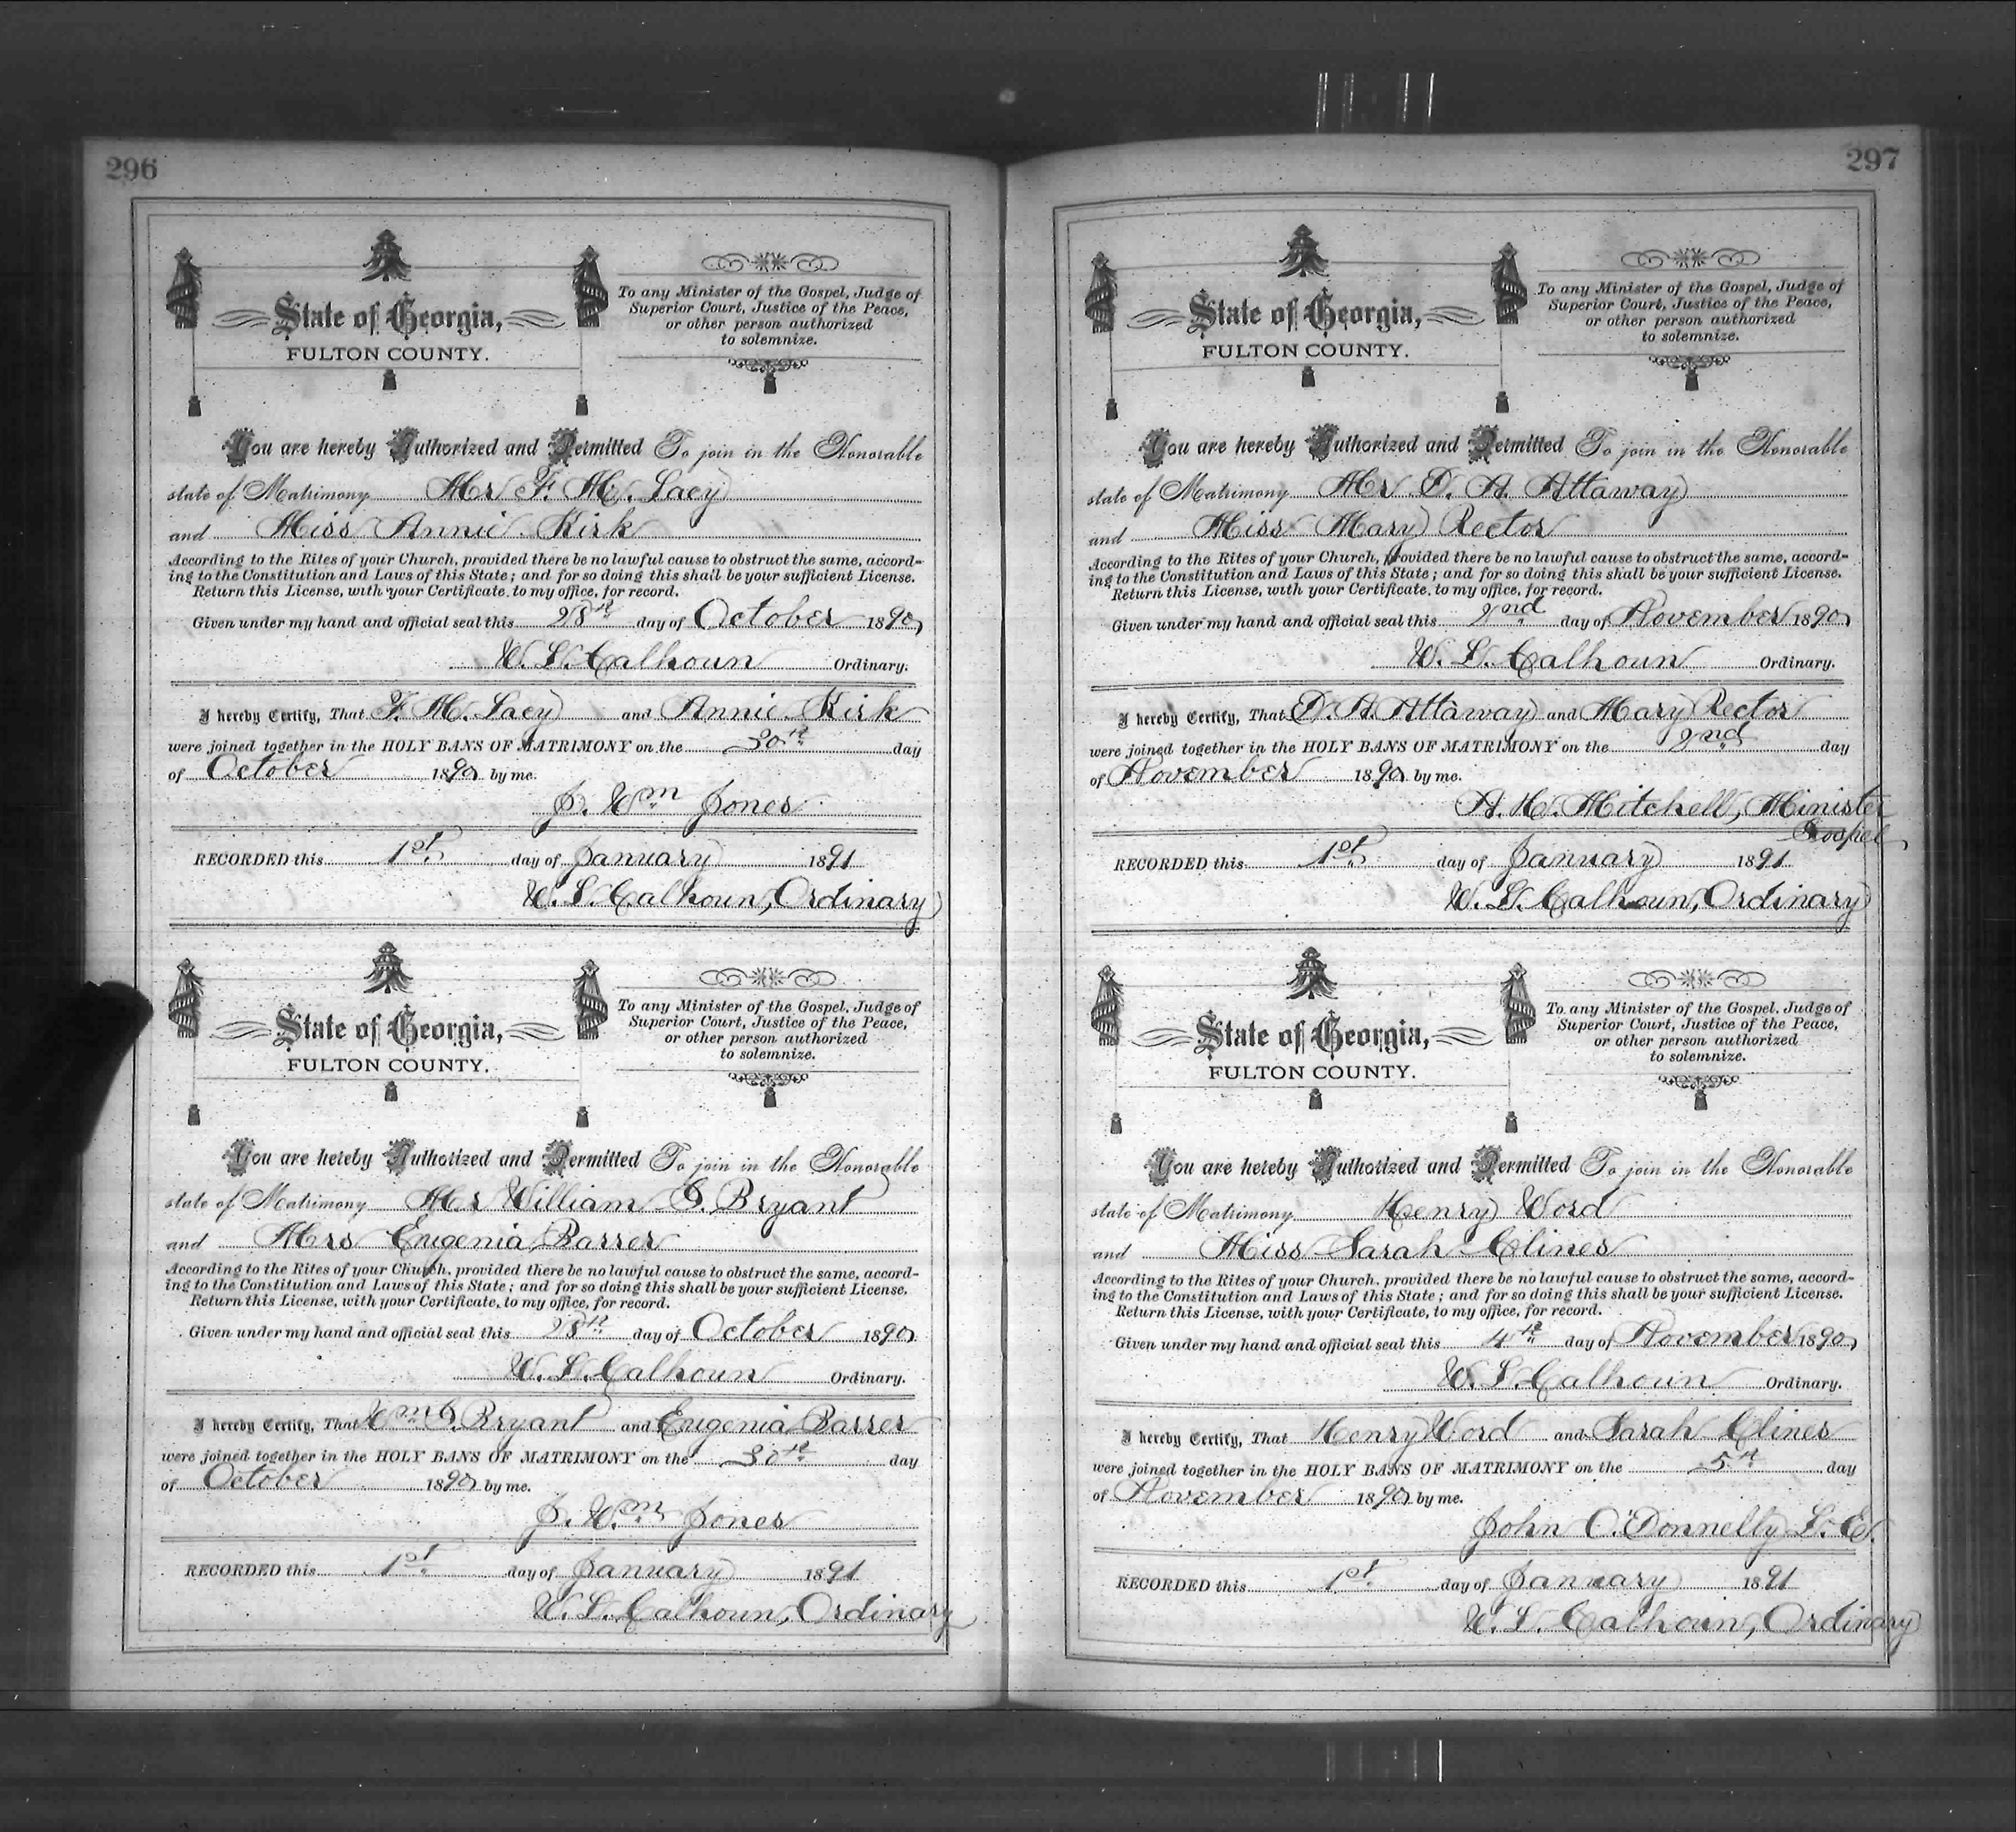 296
State of Georgia,
FULTON COUNTY.
To any Minister of the Gospel, Judge of
Superior Court, Justice of the Peace,
or other person authorized
to solemnize.
You are hereby Authorized and Permitted To join in the Honorable
state of Matrimony Mr F. M. Lacy
and Miss Annie Kirk
According to the Rites of your Church, provided there be no lawful cause to obstruct the same, accord-
ing to the Constitution and Laws of this State; and for so doing this shall be your sufficient License.
Return this License, with your Certificate, to my office, for record.
Given under my hand and official seal this 28th day of October 1890
W. L. Calhoun Ordinary.
I hereby Certify, That F. M. Lacy and Annie Kirk
were joined together in the HOLY BANS OF MATRIMONY on the 30th day
of October 1890 by me.
J. Wm Jones
RECORDED this 1st day of January 1891
W. L. Calhoun, Ordinary
State of Georgia,
FULTON COUNTY.
To any Minister of the Gospel, Judge of
Superior Court, Justice of the Peace,
or other person authorized
to solemnize.
You are hereby Authorized and Permitted To join in the Honorable
state of Matrimony Mr William Bryant
and Mrs Eugenia Barrer
According to the Rites of your Church, provided there be no lawful cause to obstruct the same, accord-
ing to the Constitution and Laws of this State; and for so doing this shall be your sufficient License.
Return this License, with your Certificate, to my office, for record.
Given under my hand and official seal this 28th day of October 1890
W. L. Calhoun Ordinary.
I hereby Certify, That Wm Bryant and Eugenia Barrer
were joined together in the HOLY BANS OF MATRIMONY on the 30th day
of October 1890 by me.
J. Wm Jones
RECORDED this 1st day of January 1891
W. L. Calhoun, Ordinary
297
State of Georgia,
FULTON COUNTY.
To any Minister of the Gospel, Judge of
Superior Court, Justice of the Peace,
or other person authorized
to solemnize.
You are hereby Authorized and Permitted To join in the Honorable
state of Matrimony Mr D. A. Attaway
and Miss Mary Rector
According to the Rites of your Church, provided there be no lawful cause to obstruct the same, accord-
ing to the Constitution and Laws of this State; and for so doing this shall be your sufficient License.
Return this License, with your Certificate, to my office, for record.
Given under my hand and official seal this 2nd day of November 1890
W. L. Calhoun Ordinary.
I hereby Certify, That D. A. Attaway and Mary Rector
were joined together in the HOLY BANS OF MATRIMONY on the 2nd day
of November 1890 by me.
A. H. Mitchell, Minister
Gospel
RECORDED this 1st day of January 1891
W. L. Calhoun, Ordinary
State of Georgia,
FULTON COUNTY.
To any Minister of the Gospel, Judge of
Superior Court, Justice of the Peace,
or other person authorized
to solemnize.
You are hereby Authorized and Permitted To join in the Honorable
state of Matrimony Henry Word
and Miss Sarah Clines
According to the Rites of your Church, provided there be no lawful cause to obstruct the same, accord-
ing to the Constitution and Laws of this State; and for so doing this shall be your sufficient License.
Return this License, with your Certificate, to my office, for record.
Given under my hand and official seal this 4th day of November 1890
W. L. Calhoun Ordinary.
I hereby Certify, That Henry Word and Sarah Clines
were joined together in the HOLY BANS OF MATRIMONY on the 5th day
of November 1890 by me.
John O'Donnelly L. E.
RECORDED this 1st day of January 1891
W. L. Calhoun, Ordinary